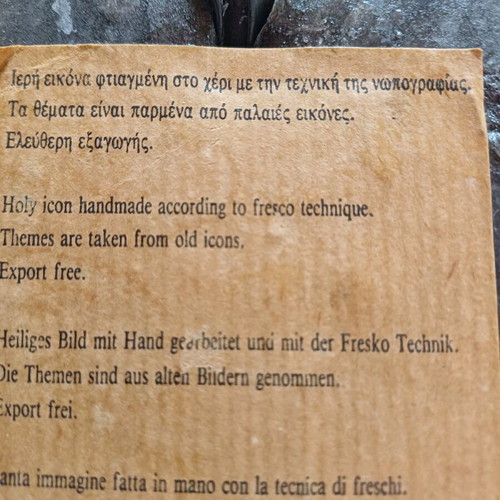 Ιερή εικόνα φτιαγμένη στο χέρι με την τεχνική της νωπογραφίας.
Τα θέματα είναι παρμένα από παλαιές εικόνες.
Ελεύθερη εξαγωγής.
Holy icon handmade according to fresco technique.
Themes are taken from old icons.
Export free.
Heiliges Bild mit Hand gearbeitet und mit der Fresko Technik.
Die Themen sind aus alten Bildern genommen.
Export frei.
anta immagine fatta in mano con la tecnica di freschi.